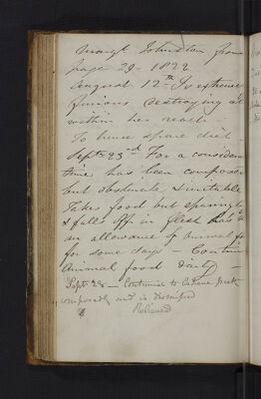 Margt Johnston from
page 29 - 1822
August 12th Is extreme
furious destroying all
within her reach
To have spare diet
Septr 23rd For a considera
time has been composed
but obstinate & irritable
Takes food but sparingly
& falls off in flesh has
an allowance of animal fo
for some days - Contin
Animal food daily -
Septr 28 - Continues to
composedly and is dismissed
Relieved